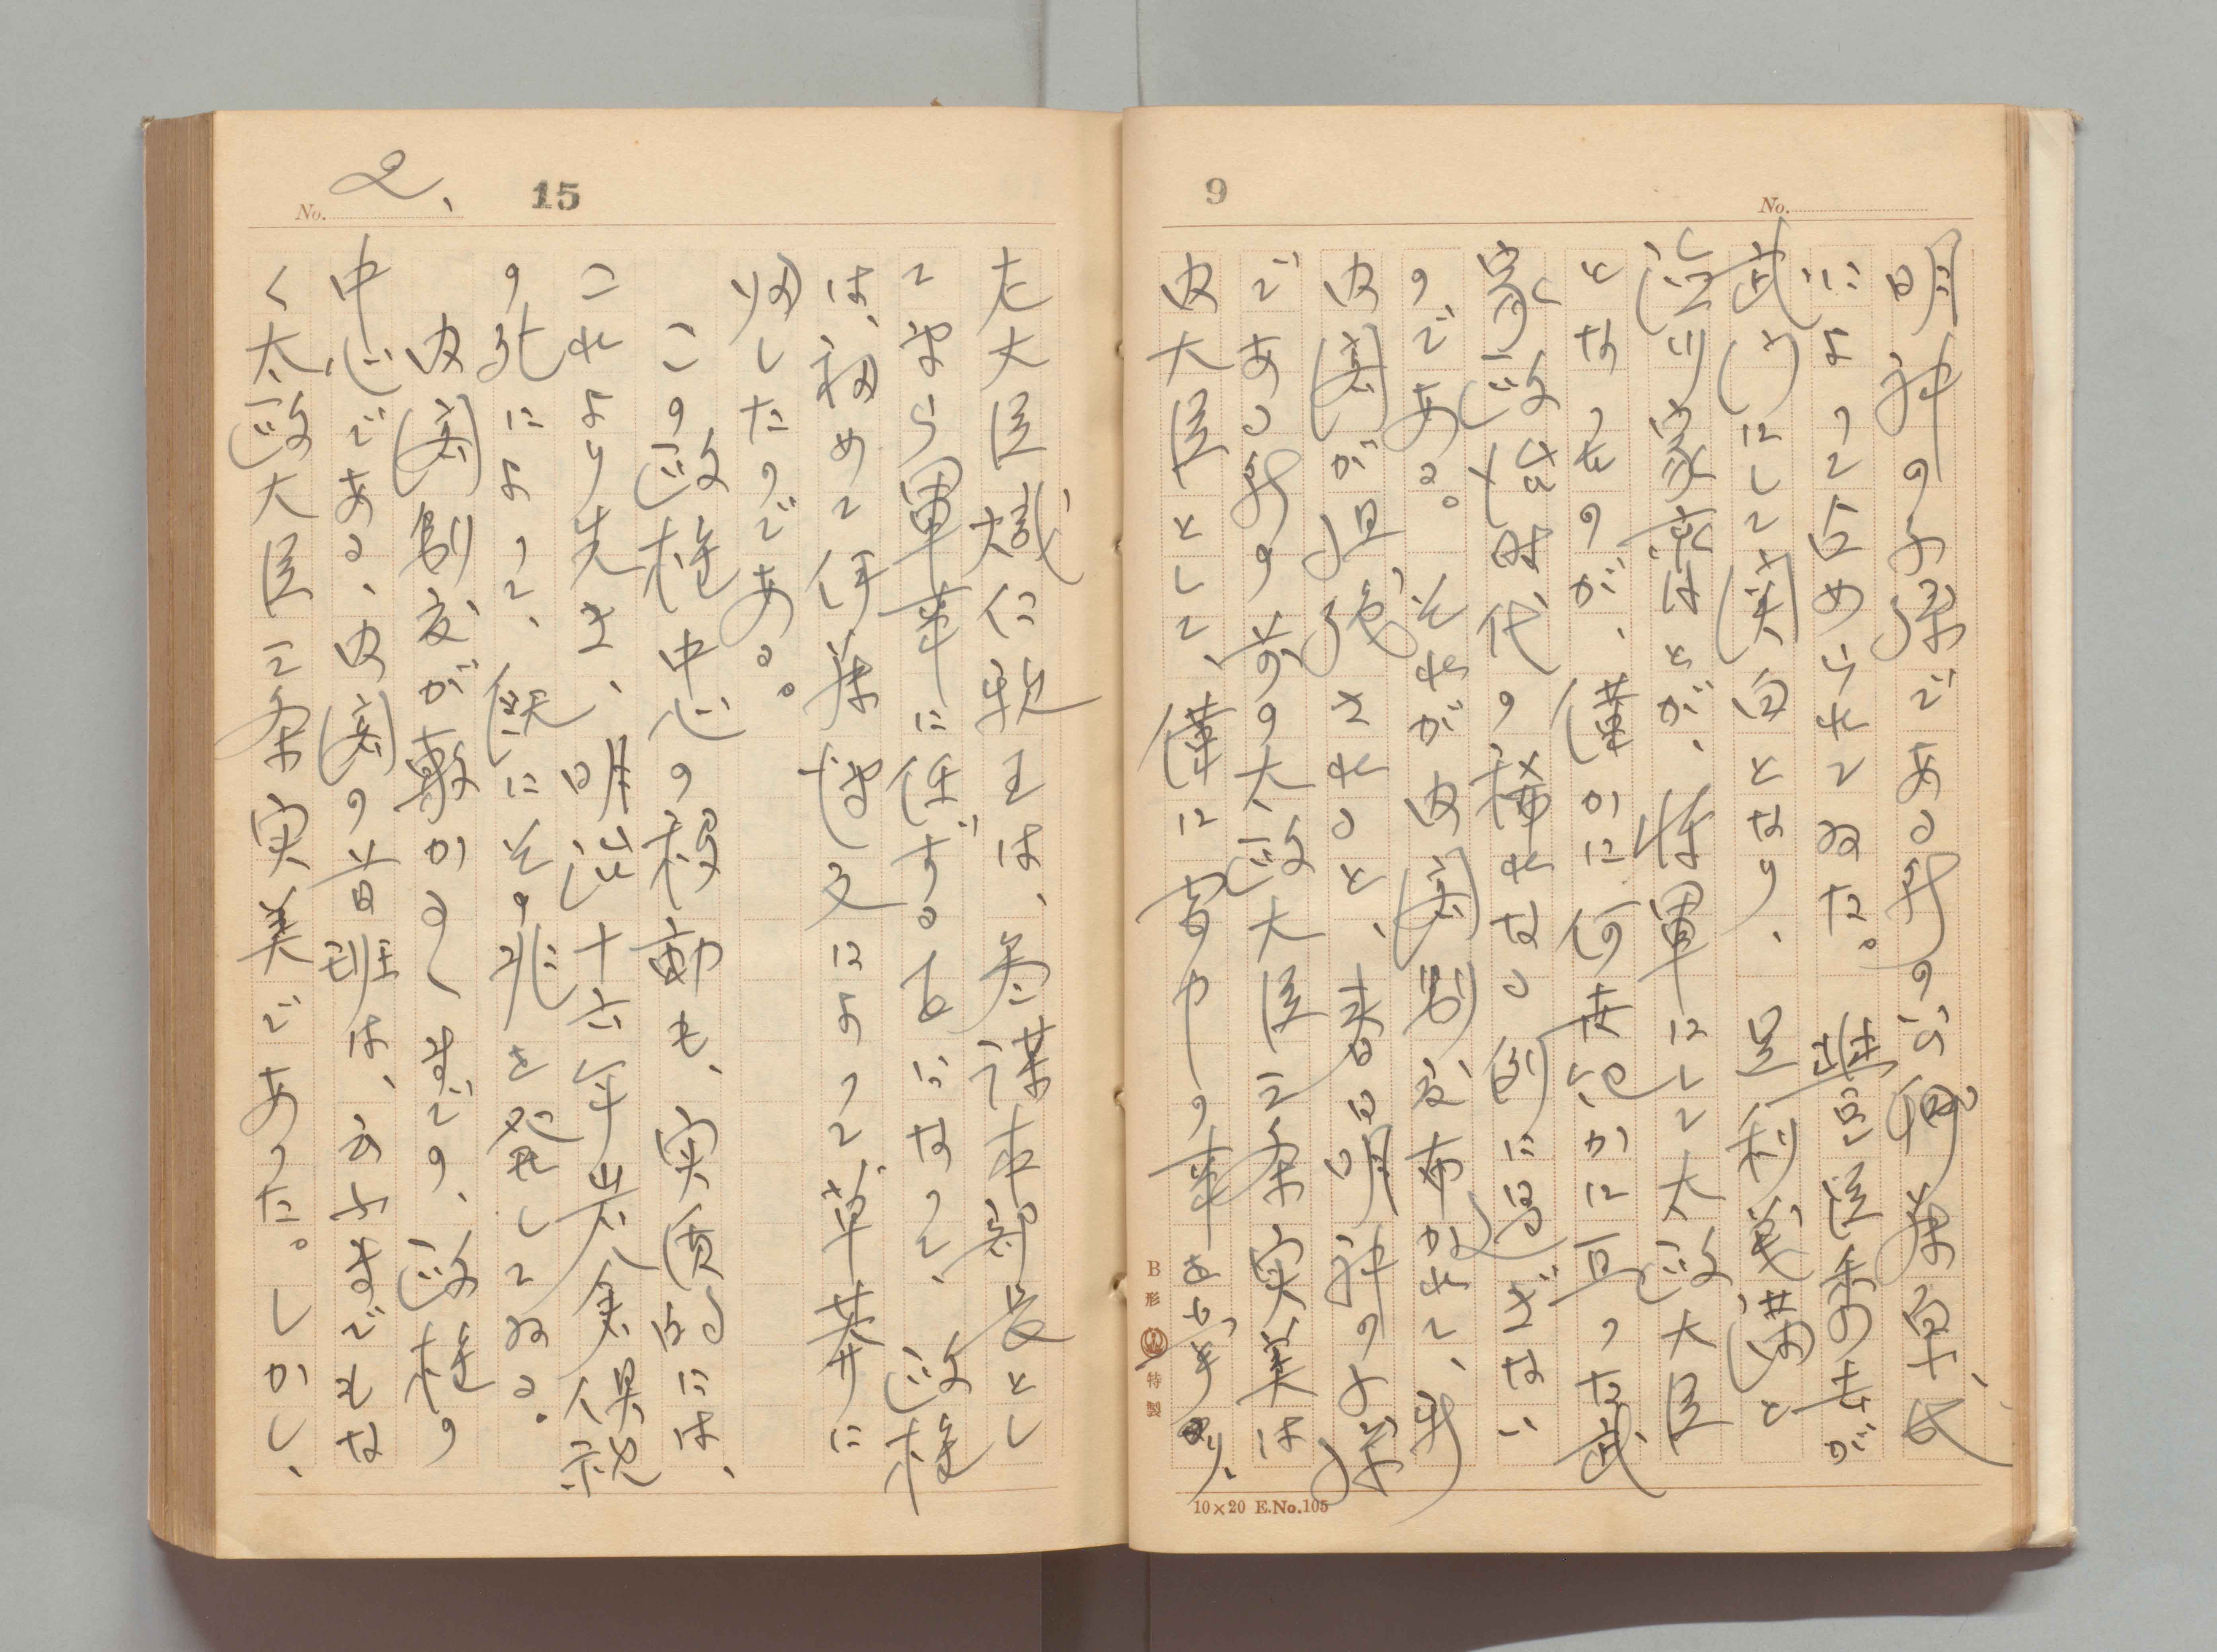 9
No.
明神の子孫である所の公卿華卓、氏
によって占められてゐた。豊臣秀吉が
武門にして関白となり、足利義満と
徳川家康はとが、将軍にして太政大臣
となったのが、僅かに何世紀かに亘った武
家政治時代の稀れなる例に過ぎない
のである。それが内閣制度布かれて、新
内閣が組織されると、春日明神の子孫
である所の前の太政大臣三条実美は
内大臣として、僅に宮中の事を
B形 特製
10×20 E.No.105
No. 2、
15
左大臣熾仁親王は、参謀本部長とし
て専ら軍事に任ずることになって、政権
は、初めて伊藤博文によって草莽に
帰したのである。
この政権中心の移動も、実質的には、
これより先き、明治十六年岩倉具視
の死によって、既にその兆を発してゐる。
内閣制度が敷かるゝまでの、政権の
中心である、内閣の首班は、云ふまでもな
く太政大臣三条実美であった。しかし、